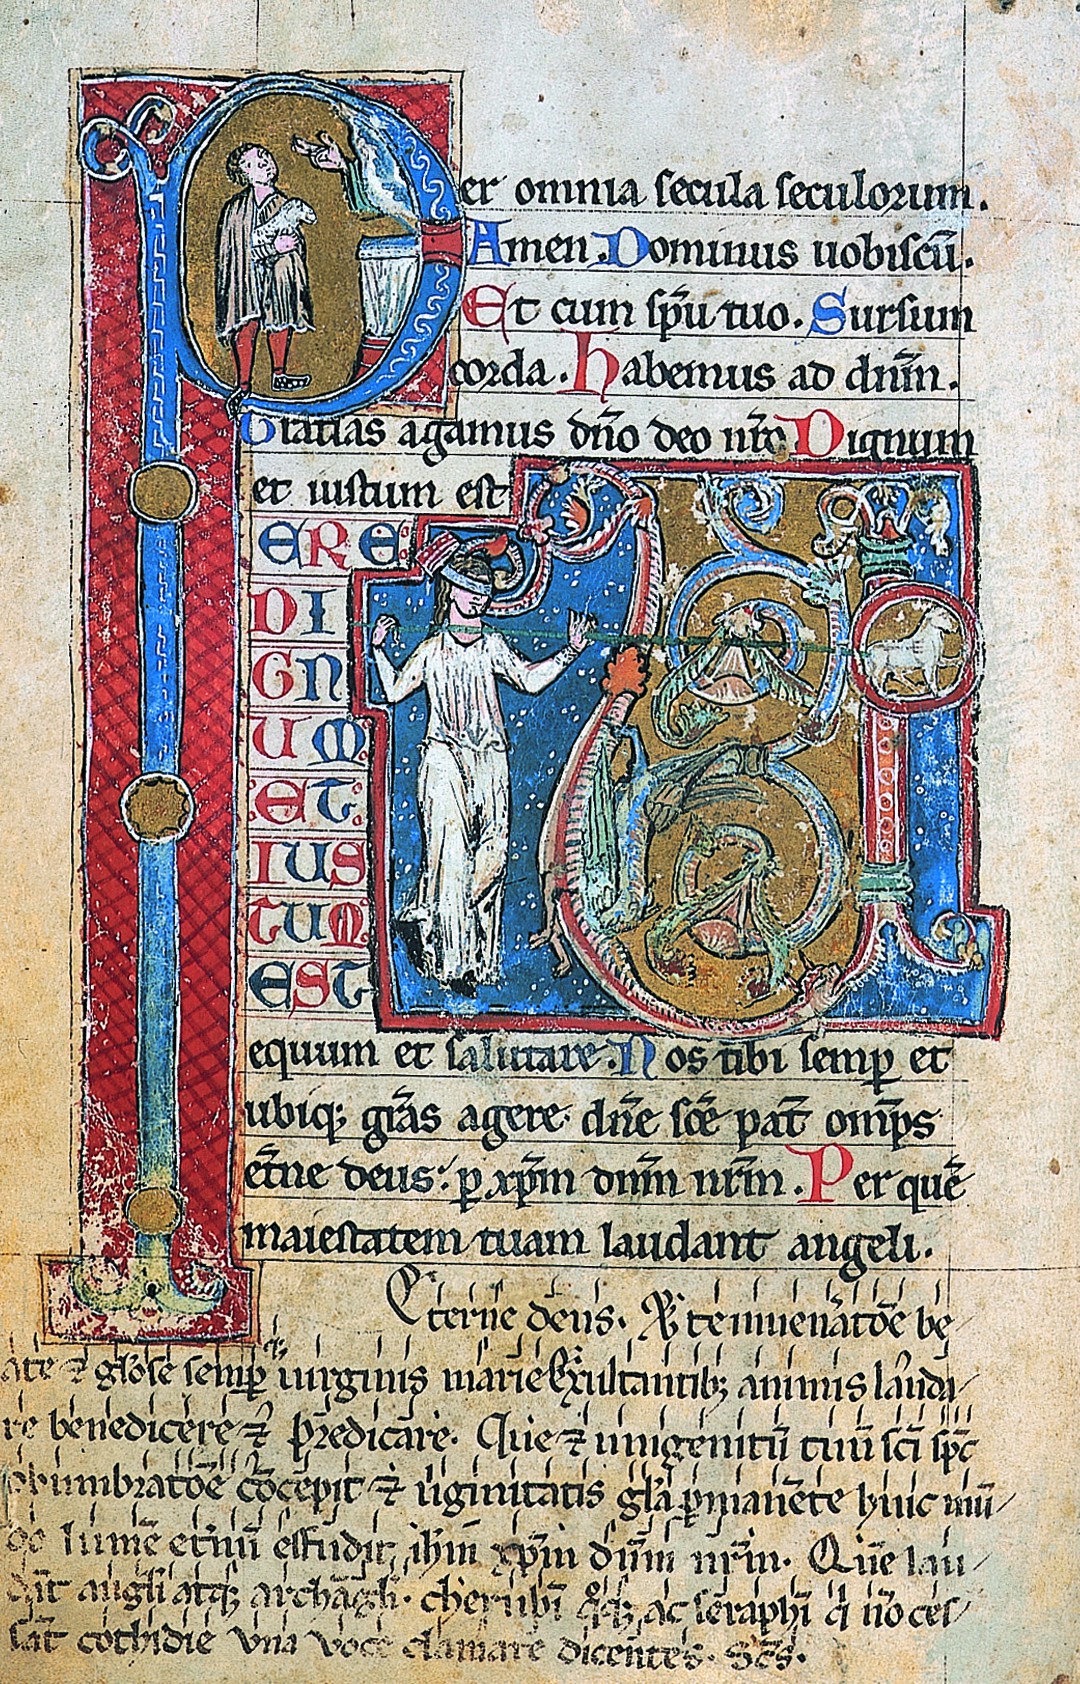 Per omnia secula seculorum.
Amen. Dominus uobiscū.
Et cum sp̄u tuo. Sursum
corda. Habemus ad dn̄m.
Gratias agamus dn̄o deo nr̄o Dignum
et iustum est
VERE
DI
GNU
UM
ET
IUS
TUM
EST
equum et salutare. Nos tibi semp et
ubiq; gr̄as agere. dn̄e sc̄e pat̄ omp̄s
et̄ne deus. p xp̄m dn̄m nr̄m. Per quē
maiestatem tuam laudant angeli.
Eterne deus. te in uenat̄oe be
ate ⁊ gl̄ose semp uirginis marie Exultantib; animis lauda
re benedicere ⁊ p̄redicare. Que ⁊ unigenitū tuū sc̄i sp̄c
obumbrat̄oe cōcepit ⁊ uiginitatis gl̄a pmanēte huic mū
lumē et̄nū effudit ih̄m xp̄m dn̄m nr̄m. Quē lau
dāt angli atq; archāgli. cherubī q̄q; ac seraphī q̄ nō ces
sāt cothidie una voce clamare dicentes. Sc̄s.